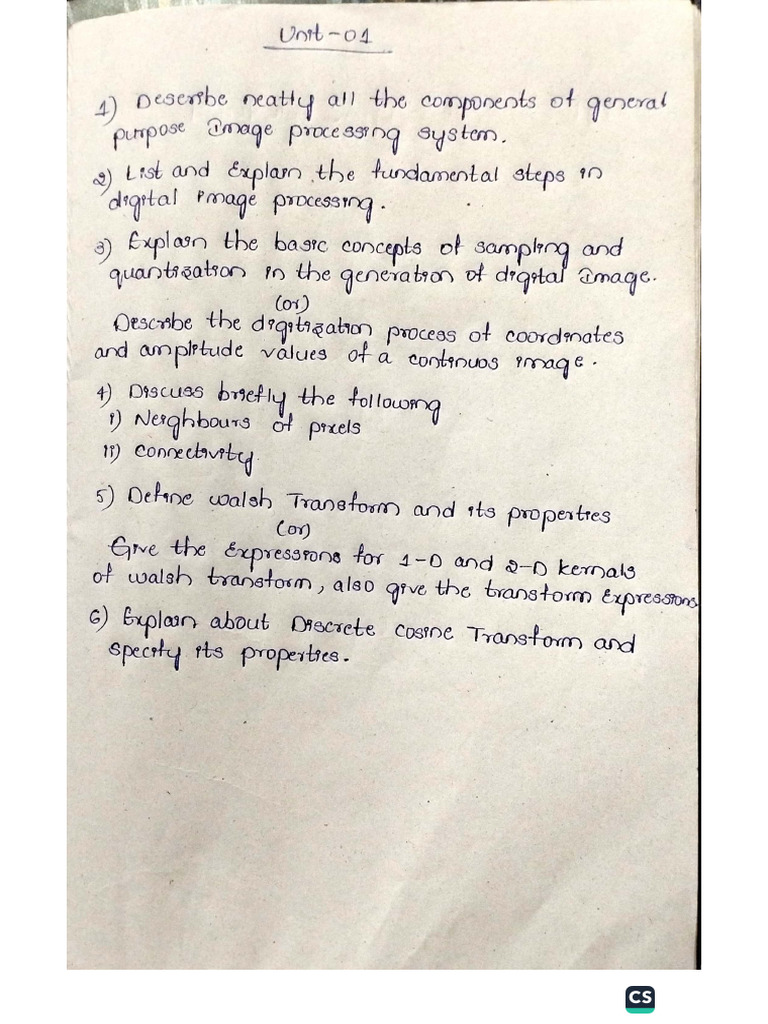 Unit-01
1) Describe neatly all the components of general
purpose Image processing system.
2) List and Explain the fundamental steps in
digital image processing.
3) Explain the basic concepts of sampling and
quantization in the generation of digital Image.
(or)
Describe the digitization process of coordinates
and amplitude values of a continuos image.
4) Discuss briefly the following
i) Neighbours of pixels
ii) connectivity.
5) Define walsh Transform and its properties
(or)
Give the Expressions for 1-D and 2-D kernals
of walsh transform, also give the transform Expressions
6) Explain about Discrete cosine Transform and
specify its properties.
CS